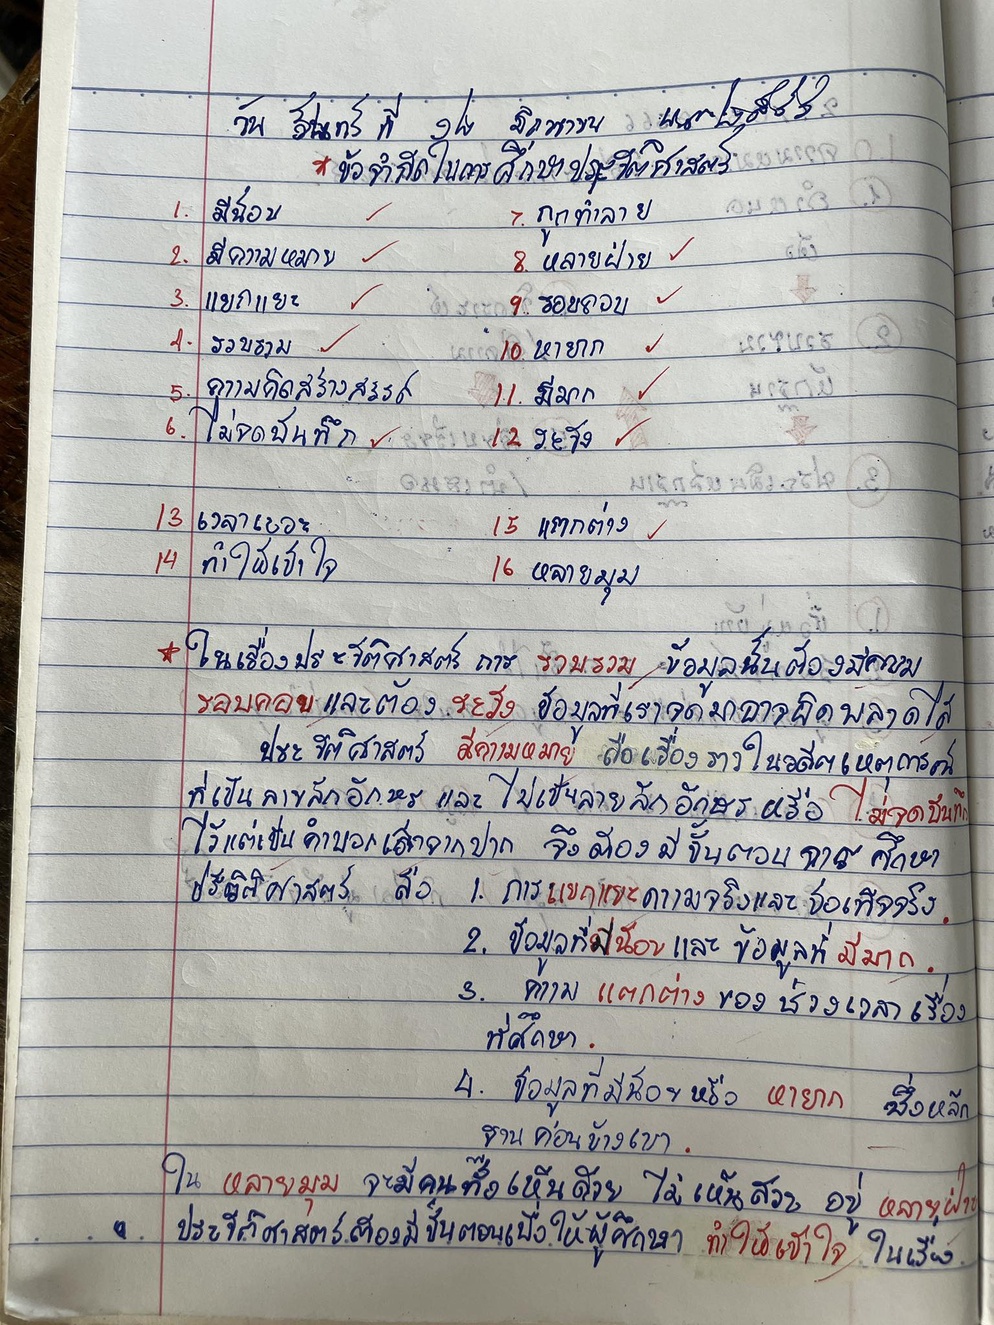 วัน จันทร์ ที่ ๑๒ มิถุนายน
* ข้อจำกัดในการศึกษาประวัติศาสตร์
1. มีน้อย
7. ถูกทำลาย
2. มีความหมาย
8. หลายฝ่าย
3. แยกแยะ
9 รอบคอบ
4. รวบรวม
10 หายาก
5. ความคิดสร้างสรรค์
11. มีมาก
6. ไม่จดบันทึก
12 ระวัง
13 เวลาเยอะ
15 แตกต่าง
14 ทำให้เข้าใจ
16 หลายมุม
* ในเรื่องประวัติศาสตร์ การ รวบรวม ข้อมูลนั้นต้องมีความ
รอบคอบ และต้อง ระวัง ข้อมูลที่เราจดมาอาจผิดพลาดได้
ประวัติศาสตร์ มีความหมาย คือเรื่องราวในอดีตเหตุการณ์
ที่เป็นลายลักอักษร และ ไม่เป็นลายลักอักษร หรือ ไม่จดบันทึก
ไว้แต่เป็นคำบอกเล่าจากปาก จึงต้องมีขั้นตอน การ ศึกษา
ประวัติศาสตร์ คือ 1. การแยกแยะความจริงและข้อเท็จจริง.
2. ข้อมูลที่มีน้อย และ ข้อมูลที่ มีมาก.
3. ความ แตกต่าง ของ ช่วงเวลา เรื่อง
ที่ศึกษา.
4. ข้อมูลที่มีน้อย หรือ หายาก ซึ่งหลัก
ฐาน ค่อนข้างเบา.
ใน หลายมุม จะมีคนทั้งเห็นด้วย ไม่ เห็นด้วย อยู่ หลายฝ่าย
ประวัติศาสตร์ต้องมีขั้นตอนเพื่อให้ผู้ศึกษา ทำให้เข้าใจ ในเรื่อง